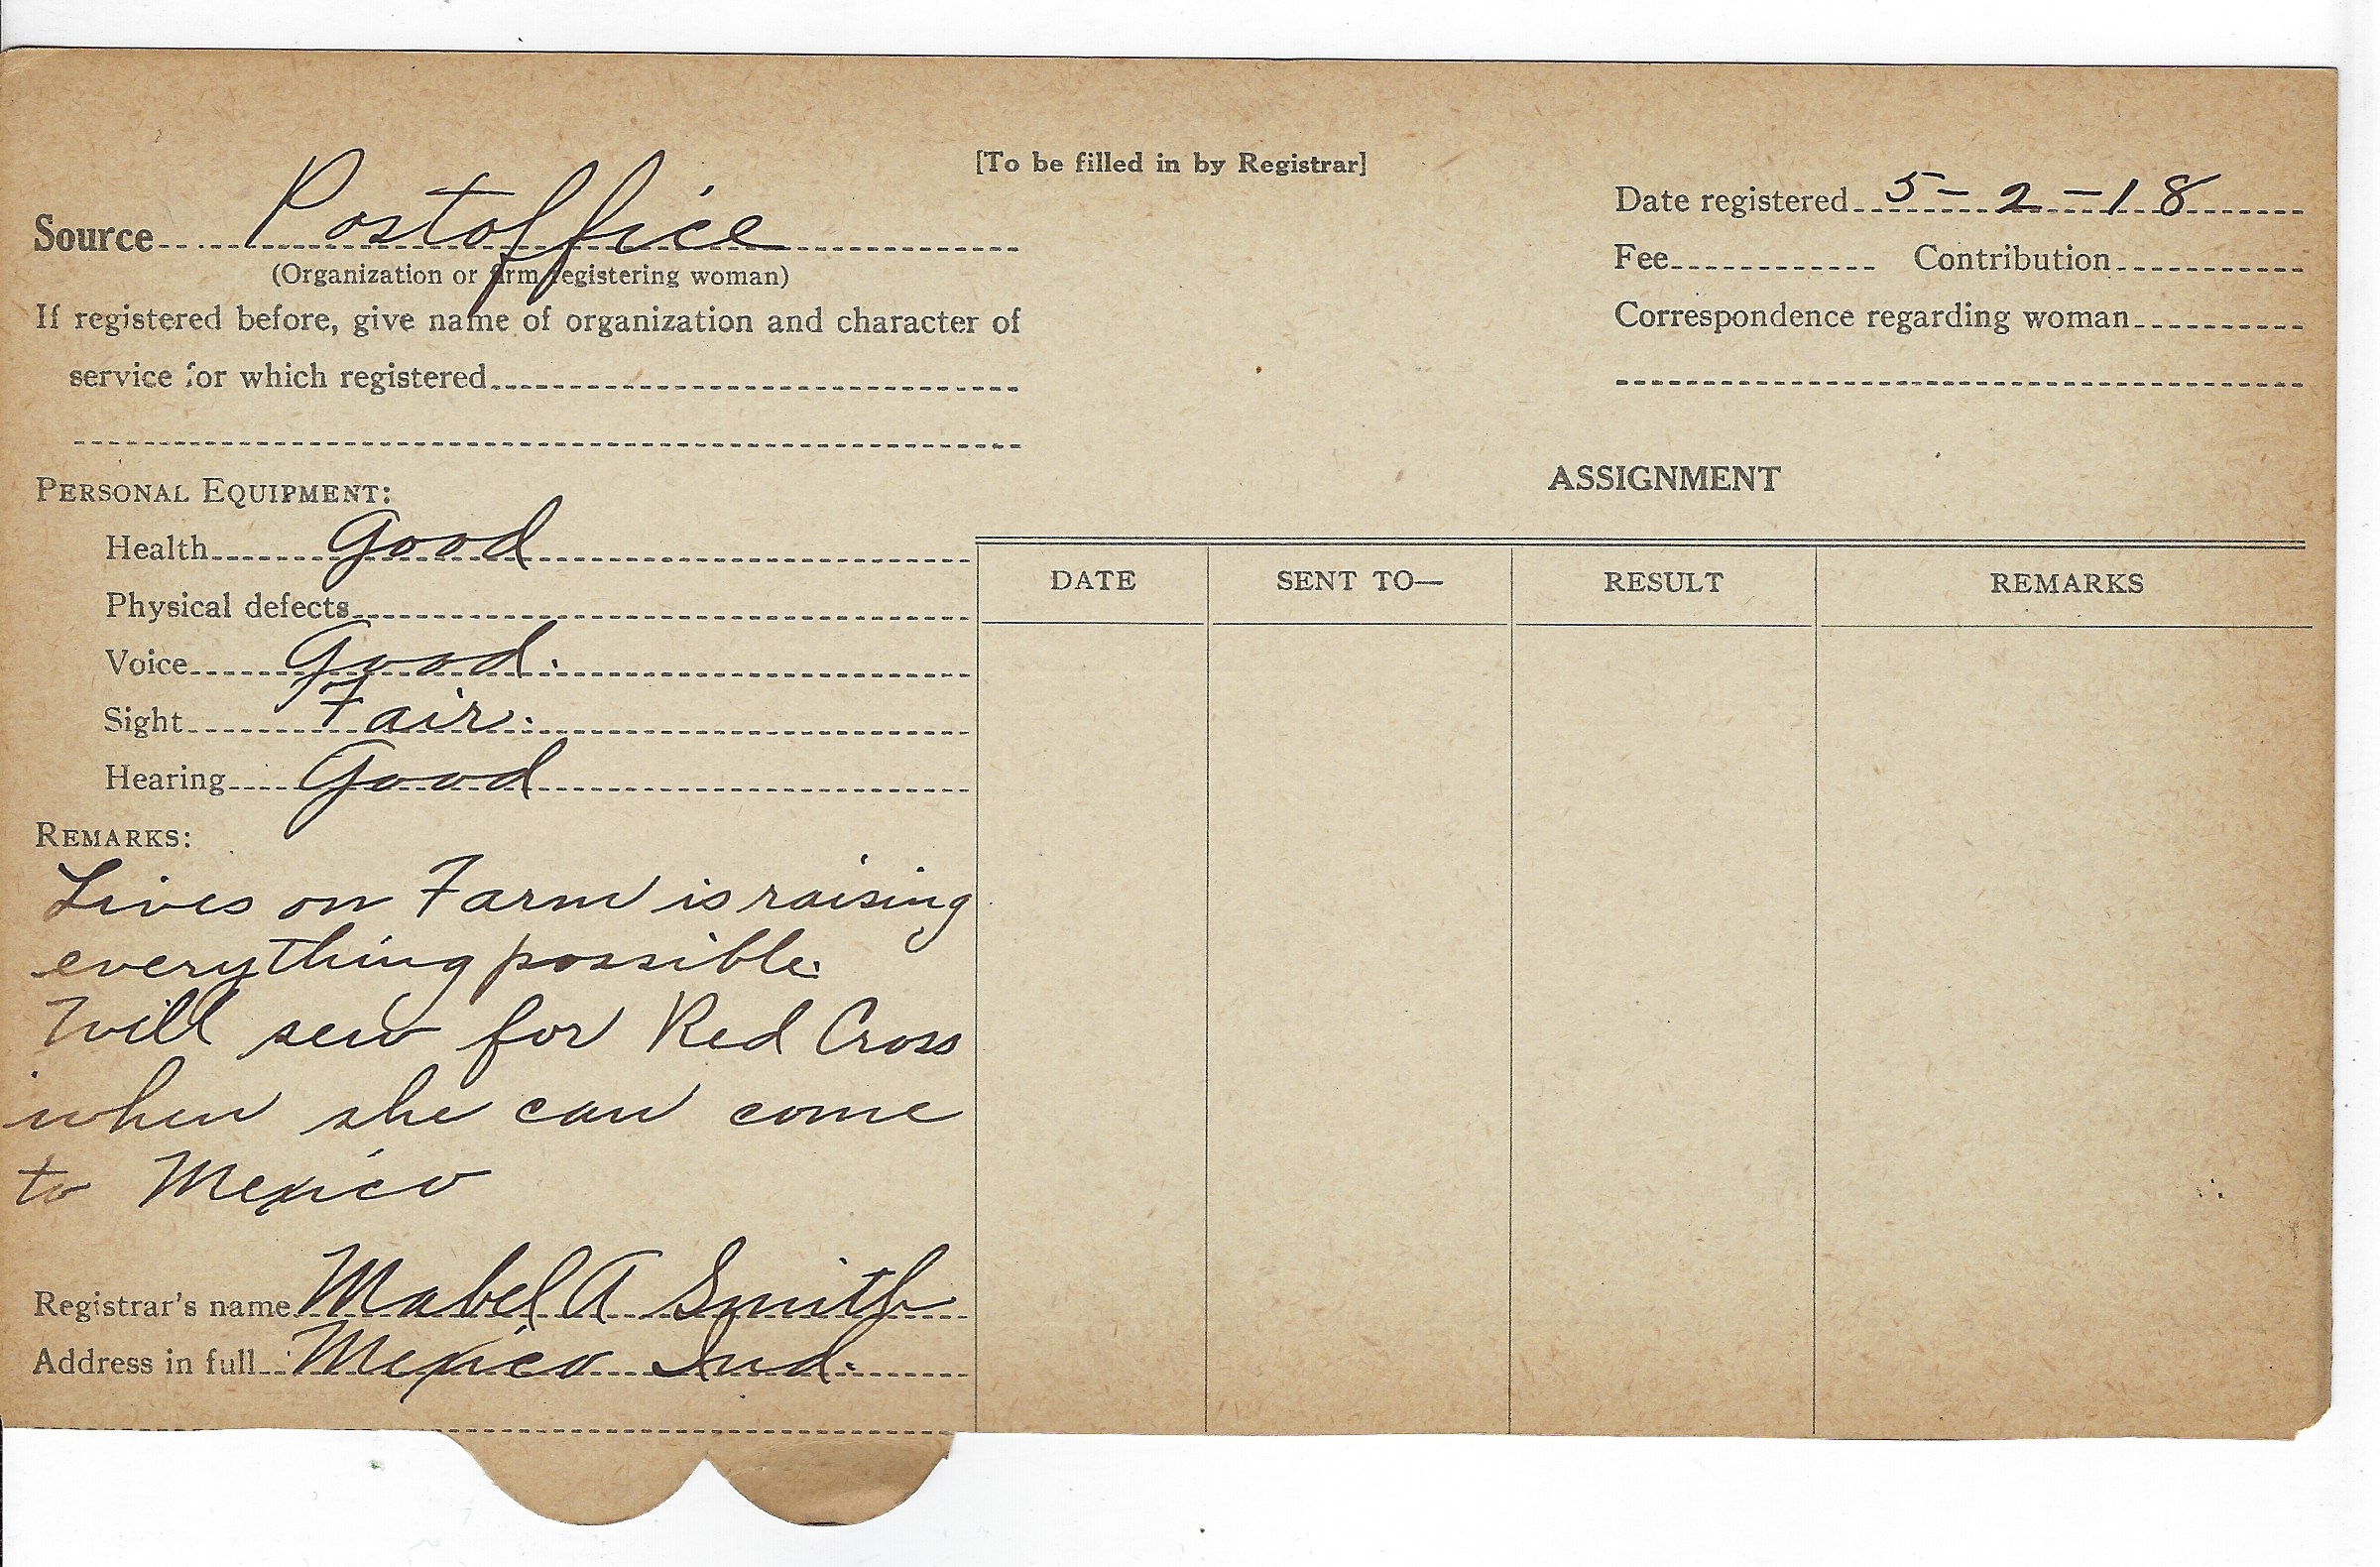 [To be filled in by Registrar]
Source Postoffice
(Organization or firm registering woman)
If registered before, give name of organization and character of
service for which registered
Date registered 5-2-18
Fee Contribution
Correspondence regarding woman
PERSONAL EQUIPMENT:
Health Good
Physical defects
Voice Good.
Sight Fair.
Hearing Good
REMARKS:
Lives on Farm is raising
everything possible.
Will sew for Red Cross
when she can come
to Mexico
Registrar's name Mabel A Smith
Address in full Mexico Ind.
ASSIGNMENT
DATE SENT TO— RESULT REMARKS